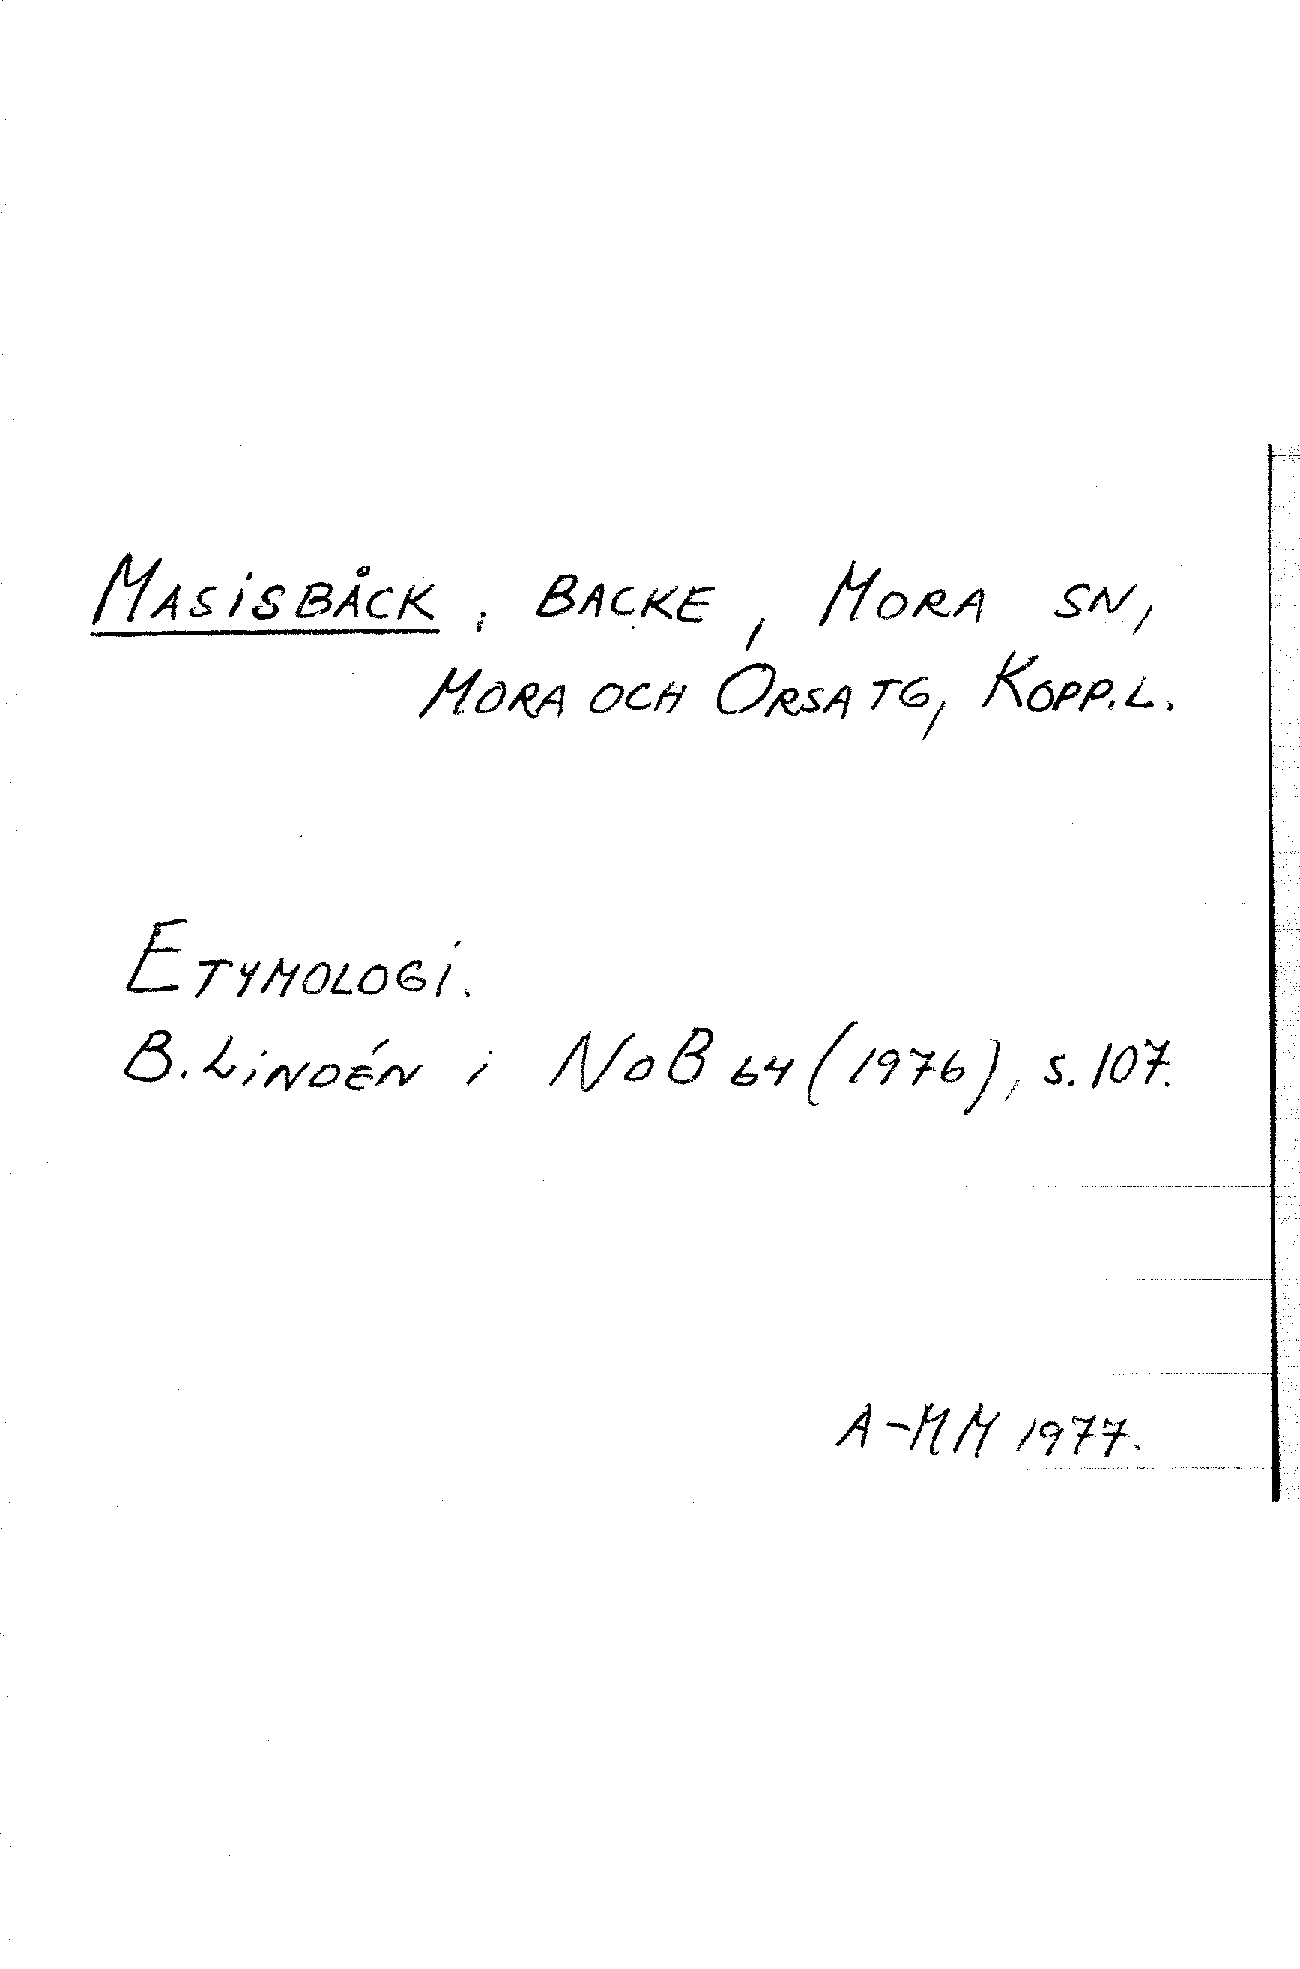 MASISBÅCK, BACKE, MORA SN,
MORA OCH ORSA TG, KOPP.L.
ETYMOLOGI.
B. LINDÉN i NoB 64 (1976), S. 107.
A-MM 1977.